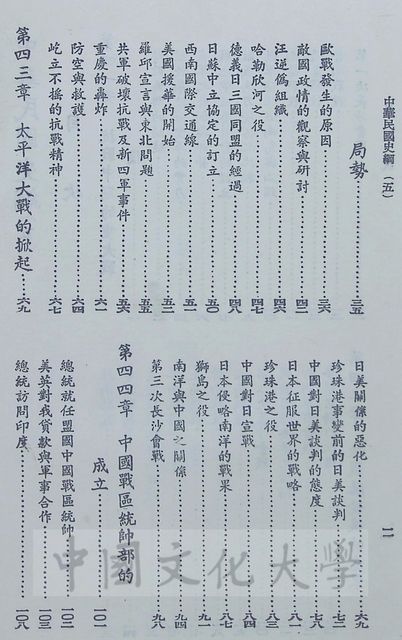 中華民國史綱（五）
二
局勢……三五
歐戰發生的原因……三六
敵國政情的觀察與研討……四二
汪逆偽組織……四六
哈勒欣河之役……四七
德義日三國同盟的經過……四八
日蘇中立協定的訂立……五〇
西南國際交通線……五一
美國援華的開始……五二
羅邱宣言與東北問題……五五
共軍破壞抗戰及新四軍事件……五六
重慶的轟炸……六一
防空與救護……六四
屹立不搖的抗戰精神……六七
第四三章 太平洋大戰的掀起……六九
日美關係的惡化……六九
珍珠港事變前的日美談判……七三
中國對日美談判的態度……七八
日本征服世界的戰略……八一
珍珠港之役……八三
中國對日宣戰……八四
日本侵略南洋的戰果……八七
獅島之役……九一
南洋與中國之關係……九四
第三次長沙會戰……九八
第四四章 中國戰區統帥部的
成立……一〇一
總統就任盟國中國戰區統帥……一〇二
美英對我貸款與軍事合作……一〇三
總統訪問印度……一〇八
中國文化大學